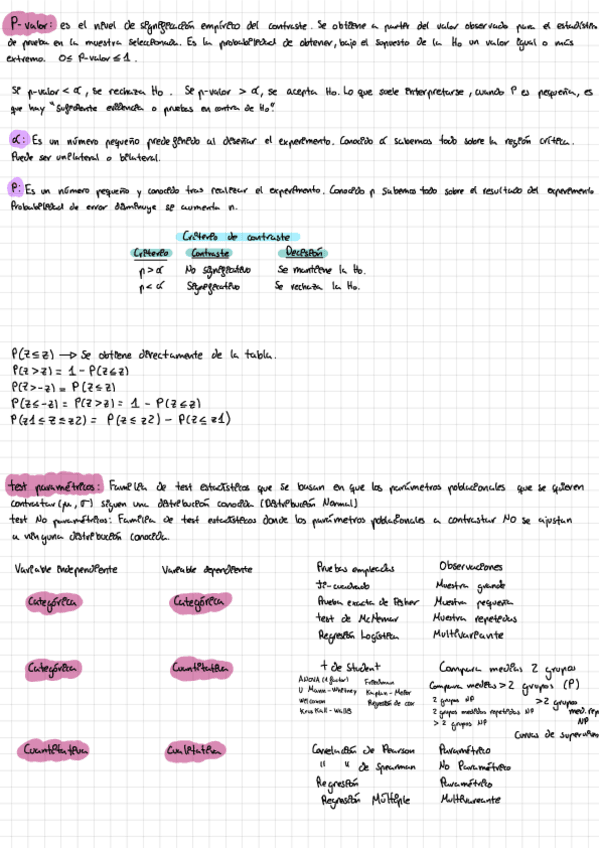 P-valor: es el nivel de significación empírico del contraste. Se obtiene a partir del valor observado para el estadístico
de prueba en la muestra seleccionada. Es la probabilidad de obtener, bajo el supuesto de la H₀ un valor igual o más
extremo. 0≤ P-valor ≤ 1.
Si p-valor < α, se rechaza H₀. Si p-valor > α, se acepta H₀. Lo que suele interpretarse, cuando P es pequeña, es
que hay "suficiente evidencia o pruebas en contra de H₀"
α: Es un número pequeño predefinido al diseñar el experimento. Conocido α sabemos todo sobre la región crítica.
Puede ser unilateral o bilateral.
P: Es un número pequeño y conocido tras realizar el experimento. Conocido p sabemos todo sobre el resultado del experimento
Probabilidad de error disminuye se aumenta n.
Criterio de contraste
Criterio Contraste Decisión
p > α No significativo Se mantiene la H₀.
p < α Significativo Se rechaza la H₀.
P(Z≤z) → Se obtiene directamente de la tabla.
P(Z>z) = 1 - P(Z≤z)
P(Z>-z) = P(Z≤z)
P(Z≤-z) = P(Z>z) = 1 - P(Z≤z)
P(z1≤Z≤z2) = P(Z≤z2) - P(Z≤z1)
test paramétricos: Familia de test estadísticos que se basan en que los parámetros poblacionales que se quieren
contrastar (μ, σ) siguen una distribución conocida (Distribución Normal)
test No paramétricos: Familia de test estadísticos donde los parámetros poblacionales a contrastar NO se ajustan
a ninguna distribución conocida.
Variable independiente Variable dependiente Pruebas empleadas Observaciones
Ji-cuadrado Muestra grande
Categórica Categórica Prueba exacta de Fisher Muestra pequeña
test de McNemar Muestra repetidas
Regresión Logística Multivariante
Categórica Cuantitativa t de Student Compara medias 2 grupos
ANOVA (1 factor) Friedman Compara medias > 2 grupos (P)
U Mann-Whitney Kaplan-Meier 2 grupos NP > 2 grupos
Wilcoxon Regresión de cox 2 grupos medidas repetidas NP med. rep
Kruskall-Wallis > 2 grupos NP NP
Curvas de superviven
Cuantitativa Cualitativa Correlación de Pearson Paramétrico
" " de Spearman No Paramétrico
Regresión Paramétrico
Regresión Múltiple Multivariante